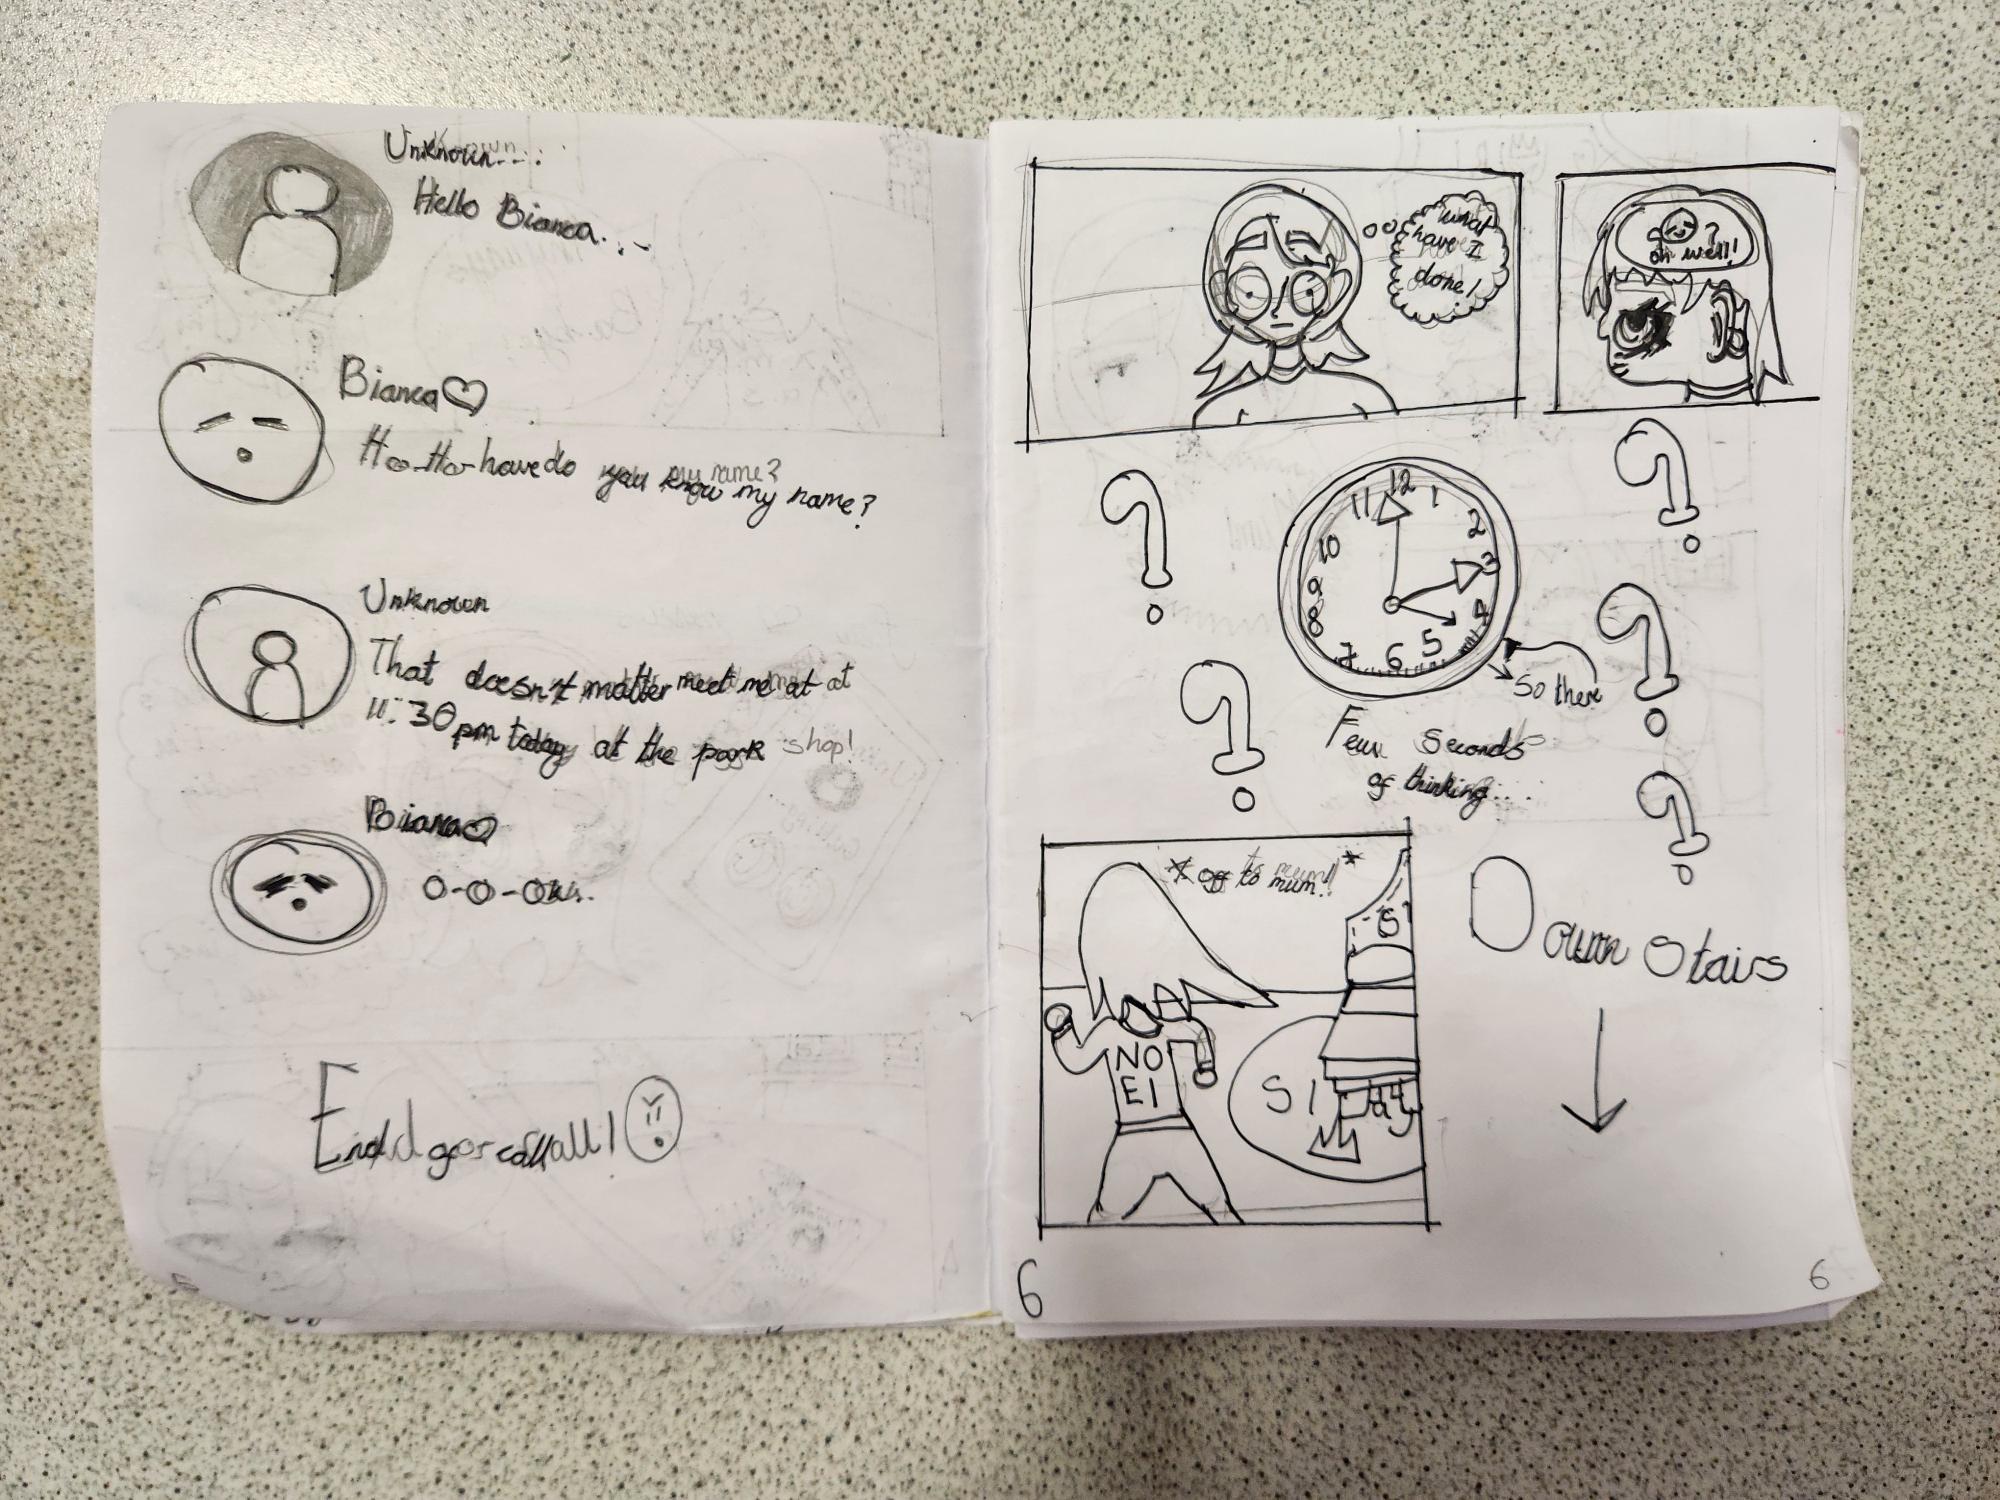 Unknown....
Hello Bianca...
Bianca
Ho-Ho-how do you know my name?
Unknown
That doesn't matter meet me at at
11:30pm today at the park shop!
Bianca
O-O-Ok..
End of call!
6
what
have I
done!
?
oh well!
?
?
?
?
?
12
11
1
10
2
9
3
8
4
7
6
5
So there
Few seconds
of thinking...
*off to mum!*
S
NO
EI
S I
Down Stairs
6